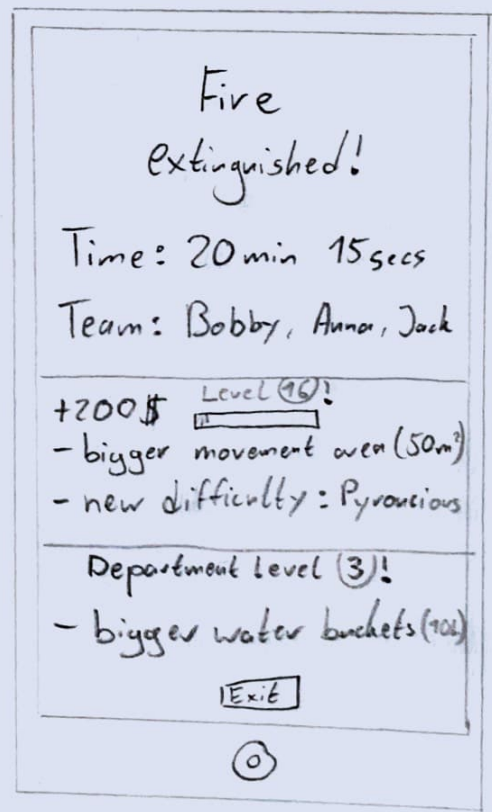 Fire
extinguished!
Time: 20min 15secs
Team: Bobby, Anna, Jack
Level 16!
+200$
- bigger movement area (50m²)
- new difficulty: Pyroucious
Department Level 3!
- bigger water buckets (10L)
Exit